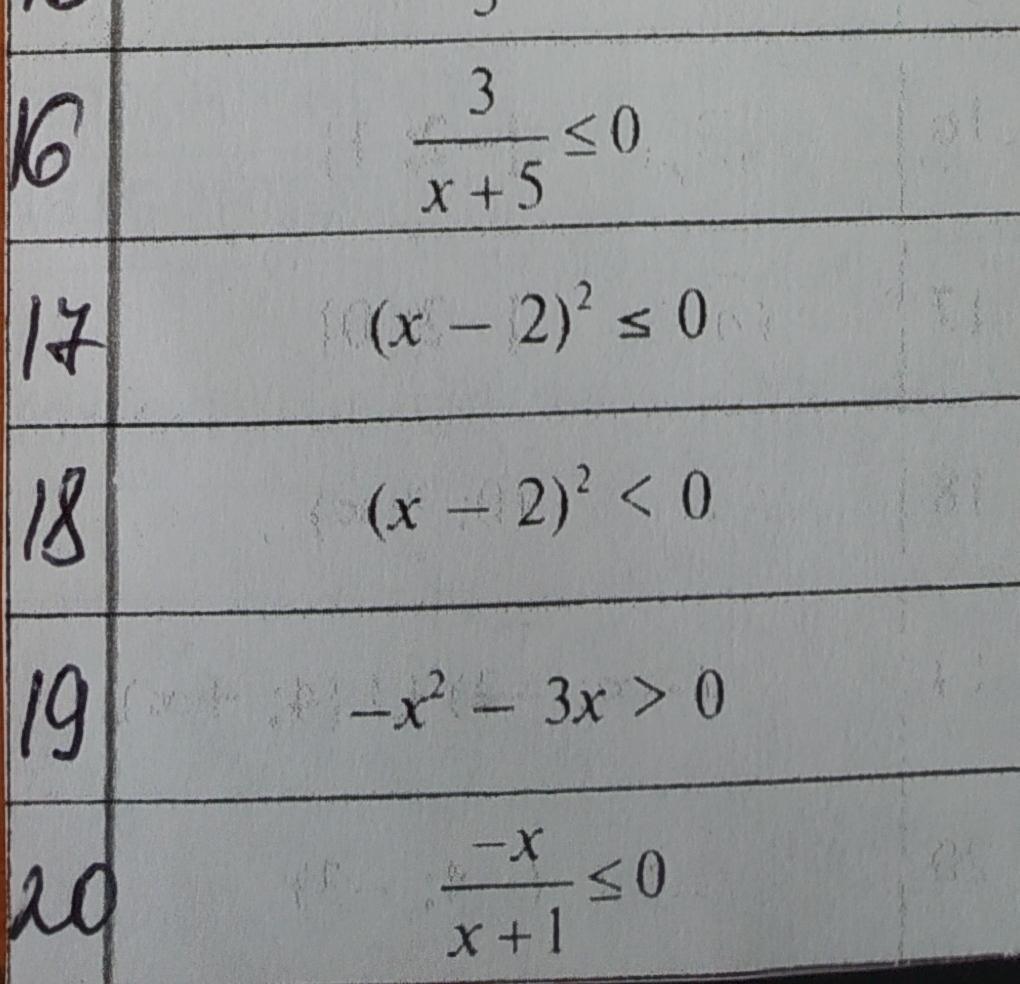 16 3/(x + 5) ≤ 0
17 (x − 2)² ≤ 0
18 (x − 2)² < 0
19 −x² − 3x > 0
20 −x/(x + 1) ≤ 0